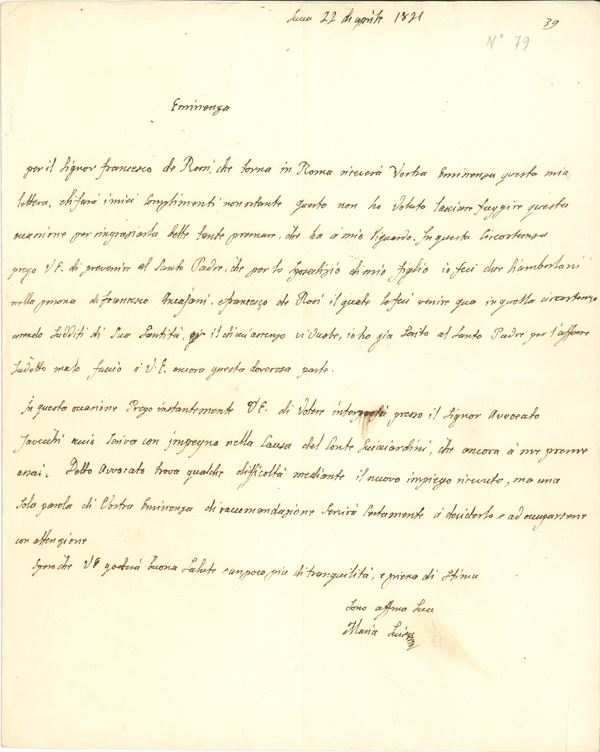 Lucca 22 di aprile 1821
39
N° 79
Eminenza
per il Signor francesco de Rossi, che torna in Roma riceverà Vostra Eminenza questa mia
lettera, e li farà i miei Complimenti nonostante questo non ho Voluto lasciare fuggire questa
occasione per ringraziarla delle tante premure, che ha a mio riguardo. In questa Circostanza
prego V.E. di prevenire al Santo Padre, che per lo Sposalizio di mio figlio io feci due Ciamberlani
nella persona di francesco e francesco de Rossi il quale lo feci venire qua in quella circostanza
essendo Sudditi di Sua Santità, io ho già Scritto al Santo Padre per l'affare
Sudetto ma lo faccio a V.E. ancora questa doverosa parte.
In questa occasione Prego instantemente V.E. di Volere presso il Signor Avvocato
acciò Scriva con impegno nella Causa del Conte Guicciardini, che ancora a me preme
assai. Detto Avvocato trova qualche difficoltà mediante il nuovo impiego ricevuto, ma una
Sola parola di Vostra Eminenza di raccomandazione Servirà Certamente a deciderlo e ad occuparsene
con attenzione
Spero che VE goderà buona Salute e un poco più di tranquilità, e piena di Stima
Sono affma Sua
Maria Luisa